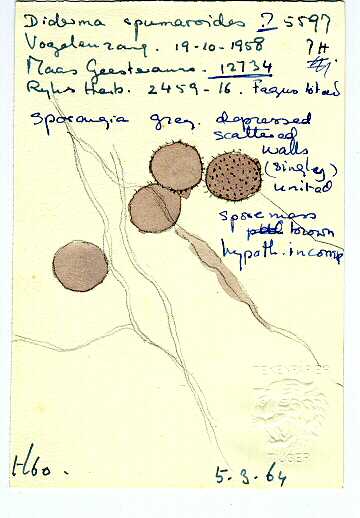 Diderma spumaroides ? 5597
Vogelenzang. 19-10-1958 ? H
Maas Geesteranus. 12734
Ryks Herb. 2459-16. Fagus blad
Sporangia grey. depressed
scattered
walls
(singley)
united
spore mass
brown
hypoth. incomp
TEKENPAPIER
H60.
5.3.64